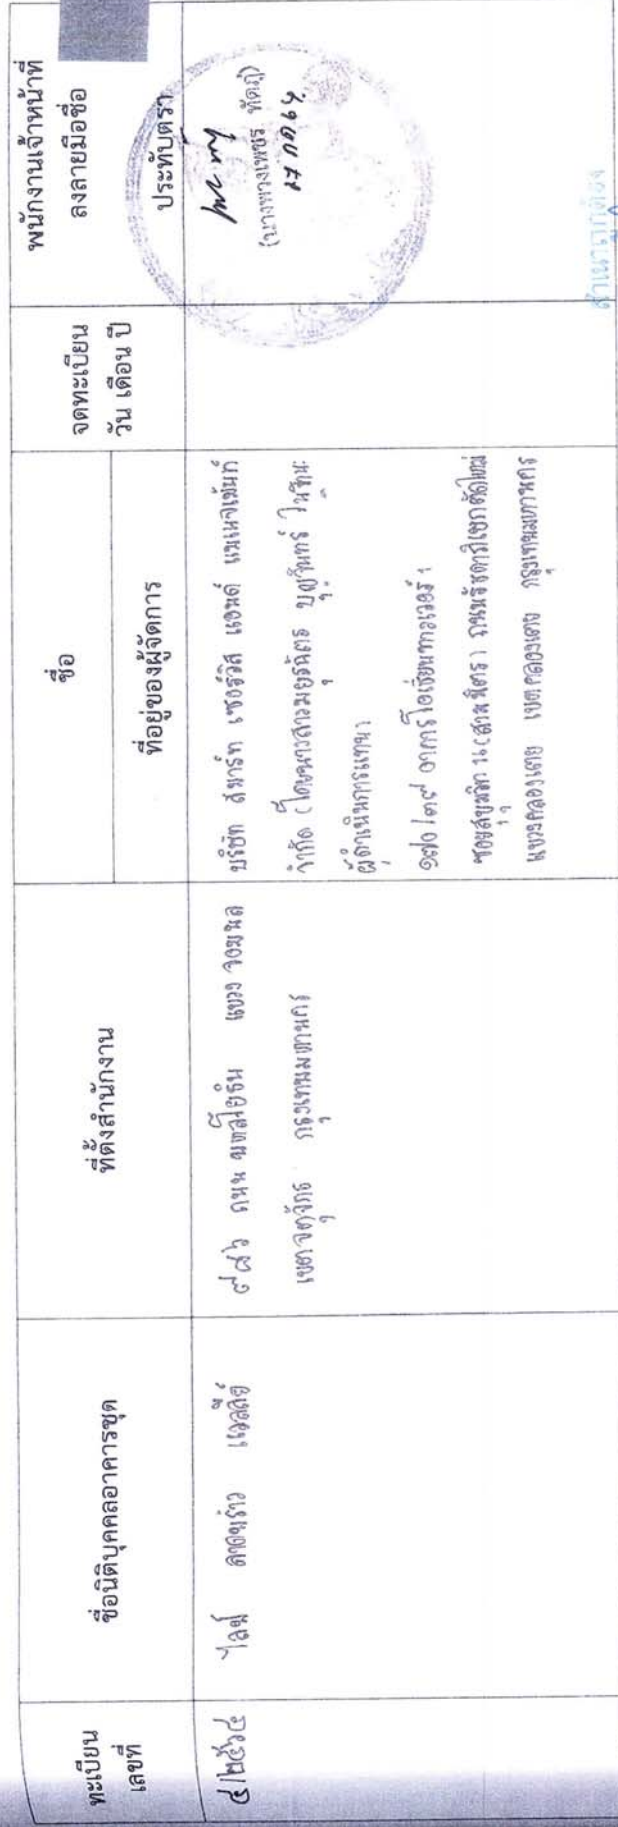 ทะเบียน
เลขที่
ชื่อนิติบุคคลอาคารชุด
ที่ตั้งสำนักงาน
ชื่อ
ที่อยู่ของผู้จัดการ
จดทะเบียน
วัน เดือน ปี
พนักงานเจ้าหน้าที่
ลงลายมือชื่อ
ประทับตรา
๔/๒๕๖๔
ไลฟ์ ลาดพร้าว แวลลีย์
๙๘๖ ถนน พหลโยธิน แขวง จอมพล
เขตจตุจักร กรุงเทพมหานคร
บริษัท สมาร์ท เซอร์วิส แอนด์ แมเนจเม้นท์
จำกัด (โดยนางสาวมยุรฉัตร บุญจันทร์ ในฐานะ
ผู้ดำเนินการแทน)
๑๗๐/๓๙ อาคารโอเชี่ยนทาวเวอร์ ๑
ซอยสุขุมวิท ๑๖ (สามมิตร) ถนนรัชดาภิเษกตัดใหม่
แขวงคลองเตย เขตคลองเตย กรุงเทพมหานคร
(นางพวงเพชร
27 กค 64
สำเนาถูกต้อง